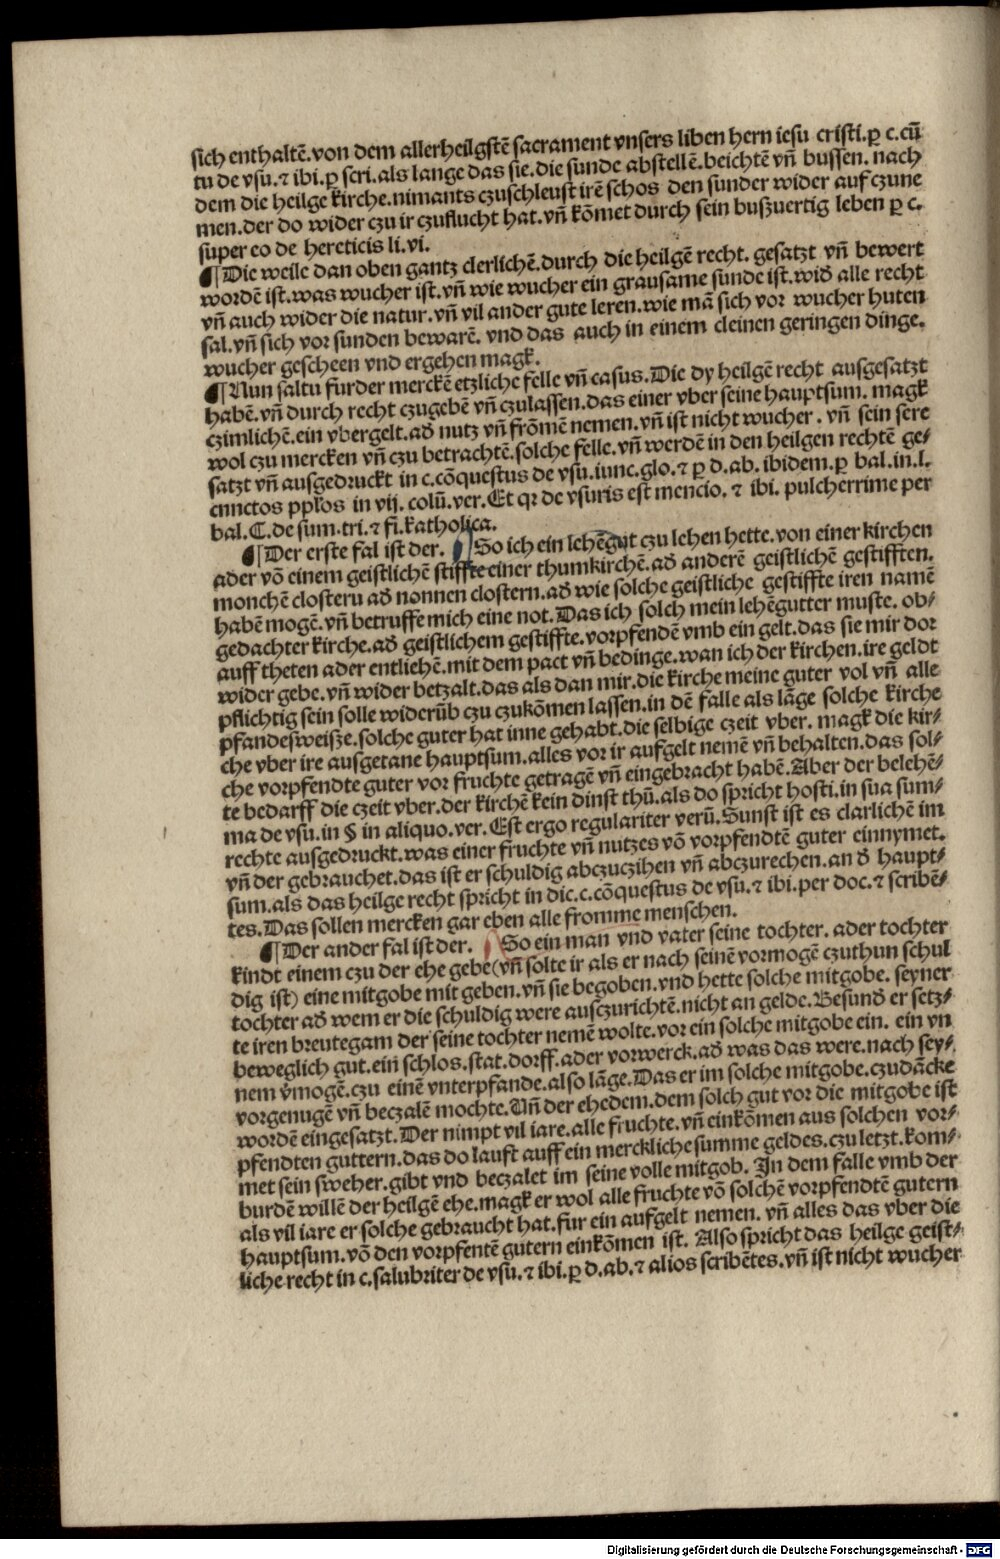 sich enthaltē.von dem allerheilgstē sacrament vnsers liben hern iesu cristi.ꝑ c.cū
tu de vsu.⁊ ibi.ꝑ scri.als lange das sie.die sunde abstellē.beichtē vñ bussen. nach
dem die heilge kirche.nimants czuschleust irē schos den sunder wider auf czune
men.der do wider czu ir czuflucht hat.vñ kōmet durch sein buszuertig leben ꝑ c.
super eo de hereticis li.vi.
¶Die weile dan oben gantz clerlichē.durch die heilgē recht. gesatzt vñ bewert
wordē ist.was wucher ist.vñ wie wucher ein grausame sunde ist.wid̄ alle recht
vñ auch wider die natur.vñ vil ander gute leren.wie mā sich vor wucher huten
sal.vñ sich vor sunden bewarē. vnd das auch in einem cleinen geringen dinge.
wucher gescheen vnd ergehen magk.
¶Nun saltu furder merckē etzliche felle vñ casus.Die dy heilgē recht ausgesatzt
habē.vñ durch recht czugebē vñ czulassen.das einer vber seine hauptsum. magk
czimlichē.ein vbergelt.ad̄ nutz vñ frōmē nemen.vñ ist nicht wucher. vñ sein sere
wol czu mercken vñ czu betrachtē.solche felle.vñ werdē in den heilgen rechtē ge⸗
satzt vñ ausgedruckt in c.cōquestus de vsu.iunc.glo.⁊ ꝑ d.ab. ibidem.ꝑ bal.in.l.
cunctos pplos in vij. colū.ver.Et qꝛ de vsuris est mencio. ⁊ ibi. pulcherrime per
bal.C.de sum.tri.⁊ fi.katholica.
¶Der erste fal ist der. ¶So ich ein lehēgut czu lehen hette.von einer kirchen
ader vō einem geistlichē stiffte einer thumkirchē.ad̄ anderē geistlichē gestifften.
monchē closteru ad̄ nonnen clostern.ad̄ wie solche geistliche gestiffte iren namē
habē mogē.vñ betruffe mich eine not.Das ich solch mein lehēgutter muste. ob⸗
gedachter kirche.ad̄ geistlichem gestiffte.vorpfendē vmb ein gelt.das sie mir dor
auff theten ader entliehē.mit dem pact vñ bedinge.wan ich der kirchen.ire geldt
wider gebe.vñ wider betzalt.das als dan mir.die kirche meine guter vol vñ alle
pflichtig sein solle widerūb czu czukōmen lassen.in dē falle als lāge solche kirche
pfandesweisze.solche guter hat inne gehabt.die selbige czeit vber. magk die kir⸗
che vber ire ausgetane hauptsum.alles vor ir aufgelt nemē vñ behalten.das sol⸗
che vorpfendte guter vor fruchte getragē vñ eingebracht habē.Aber der belehē⸗
te bedarff die czeit vber.der kirchē kein dinst thū.als do spricht hosti.in sua sum⸗
ma de vsu.in § in aliquo.ver.Est ergo regulariter verū.Sunst ist es clarlichē im
rechte ausgedruckt.was einer fruchte vñ nutzes vō vorpfendtē guter einnymet.
vñ der gebrauchet.das ist er schuldig abczuczihen vñ abczurechen.an d̄ haupt⸗
sum.als das heilge recht spricht in dic.c.cōquestus de vsu.⁊ ibi.per doc.⁊ scribē⸗
tes.Das sollen mercken gar eben alle fromme menschen.
¶Der ander fal ist der. ¶So ein man vnd vater seine tochter. ader tochter
kindt einem czu der ehe gebe(vñ solte ir als er nach seinē vormogē czuthun schul
dig ist) eine mitgobe mit geben.vñ sie begoben.vnd hette solche mitgobe. seyner
tochter ad̄ wem er die schuldig were ausczurichtē.nicht an gelde.Besund̄ er setz⸗
te iren breutegam der seine tochter nemē wolte.vor ein solche mitgobe ein. ein vn
beweglich gut.ein schlos.stat.dorff.ader vorwerck.ad̄ was das were.nach sey⸗
nem v̄mogē.czu einē vnterpfande.also lāge.Das er im solche mitgobe.czudācke
vorgenugē vñ beczalē mochte.Vñ der ehedem.dem solch gut vor die mitgobe ist
wordē eingesatzt.Der nimpt vil iare.alle fruchte.vñ einkōmen aus solchen vor⸗
pfendten guttern.das do lauft auff ein merckliche summe geldes.czu letzt.kom⸗
met sein sweher.gibt vnd beczalet im seine volle mitgob. In dem falle vmb der
burdē willē der heilgē ehe.magk er wol alle fruchte vō solchē vorpfendtē gutern
als vil iare er solche gebraucht hat.fur ein aufgelt nemen. vñ alles das vber die
hauptsum.vō den vorpfentē gutern einkōmen ist. Also spricht das heilge geist⸗
liche recht in c.salubriter de vsu.⁊ ibi.ꝑ d.ab.⁊ alios scribētes.vñ ist nicht wucher
Digitalisierung gefördert durch die Deutsche Forschungsgemeinschaft - DFG